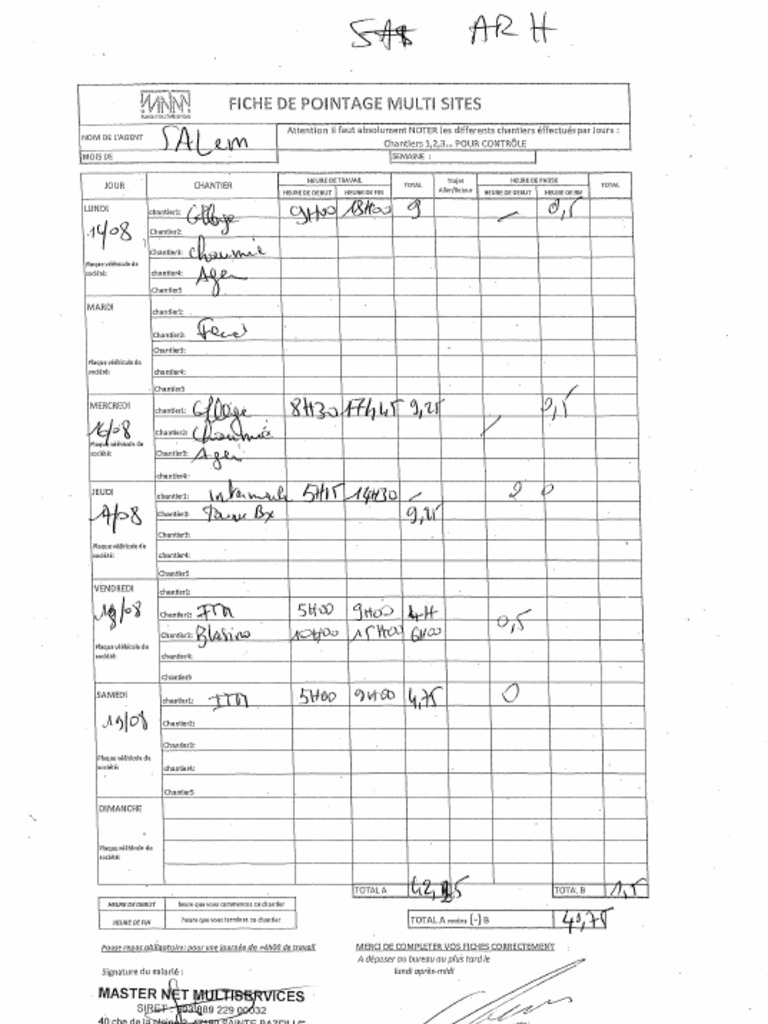 SAS ARH
MNM
FICHE DE POINTAGE MULTI SITES
NOM DE L'AGENT SALem
Attention il faut absolument NOTER les differents chantiers éffectués par Jours :
Chantiers 1,2,3... POUR CONTRÔLE
MOIS DE SEMAINE :
JOUR CHANTIER HEURE DE TRAVAIL TOTAL Trajet Aller/Retour HEURE DE PAUSE TOTAL
HEURE DE DEBUT HEURE DE FIN HEURE DE DEBUT HEURE DE FIN
LUNDI chantier1: 9H00 18H00 9 - 0,5
14/08 Chantier2:
Chantier3: Chaumie
Plaque véhicule de société: chantier4: Agen
Chantier5
MARDI chantier1:
Chantier2:
Chantier3:
Plaque véhicule de société: chantier4:
Chantier5
MERCREDI chantier1: 8H30 17H45 9,25 0,5
16/08 Chantier2: Chaumie
Plaque véhicule de société: Chantier3: Agen
chantier4:
JEUDI chantier1: 5H15 14H30 - 0
/08 Chantier2: 9,25
Chantier3:
Plaque véhicule de société: chantier4:
Chantier5
VENDREDI chantier1:
18/08 Chantier2: ITM 5H00 9H00 4H
Chantier3: Blasimo 10H00 15H00 6H00 0,5
Plaque véhicule de société: chantier4:
Chantier5
SAMEDI chantier1: ITM 5H00 9H00 4,75 0
19/08 Chantier2:
Chantier3:
Plaque véhicule de société: chantier4:
Chantier5
DIMANCHE
Plaque véhicule de société:
TOTAL A TOTAL B 1,5
HEURE DE DEBUT heure que vous commences ce chantier
HEURE DE FIN heure que vous terminé ce chantier
TOTAL A moins (-) B 40,75
Pause repas obligatoire: pour une journée de +4h00 de travail
MERCI DE COMPLETER VOS FICHES CORRECTEMENT
A déposer au bureau au plus tard le
lundi après-midi
Signature du salarié :
MASTER NET MULTISERVICES
SIRET : 889 229 00032
40 che de la